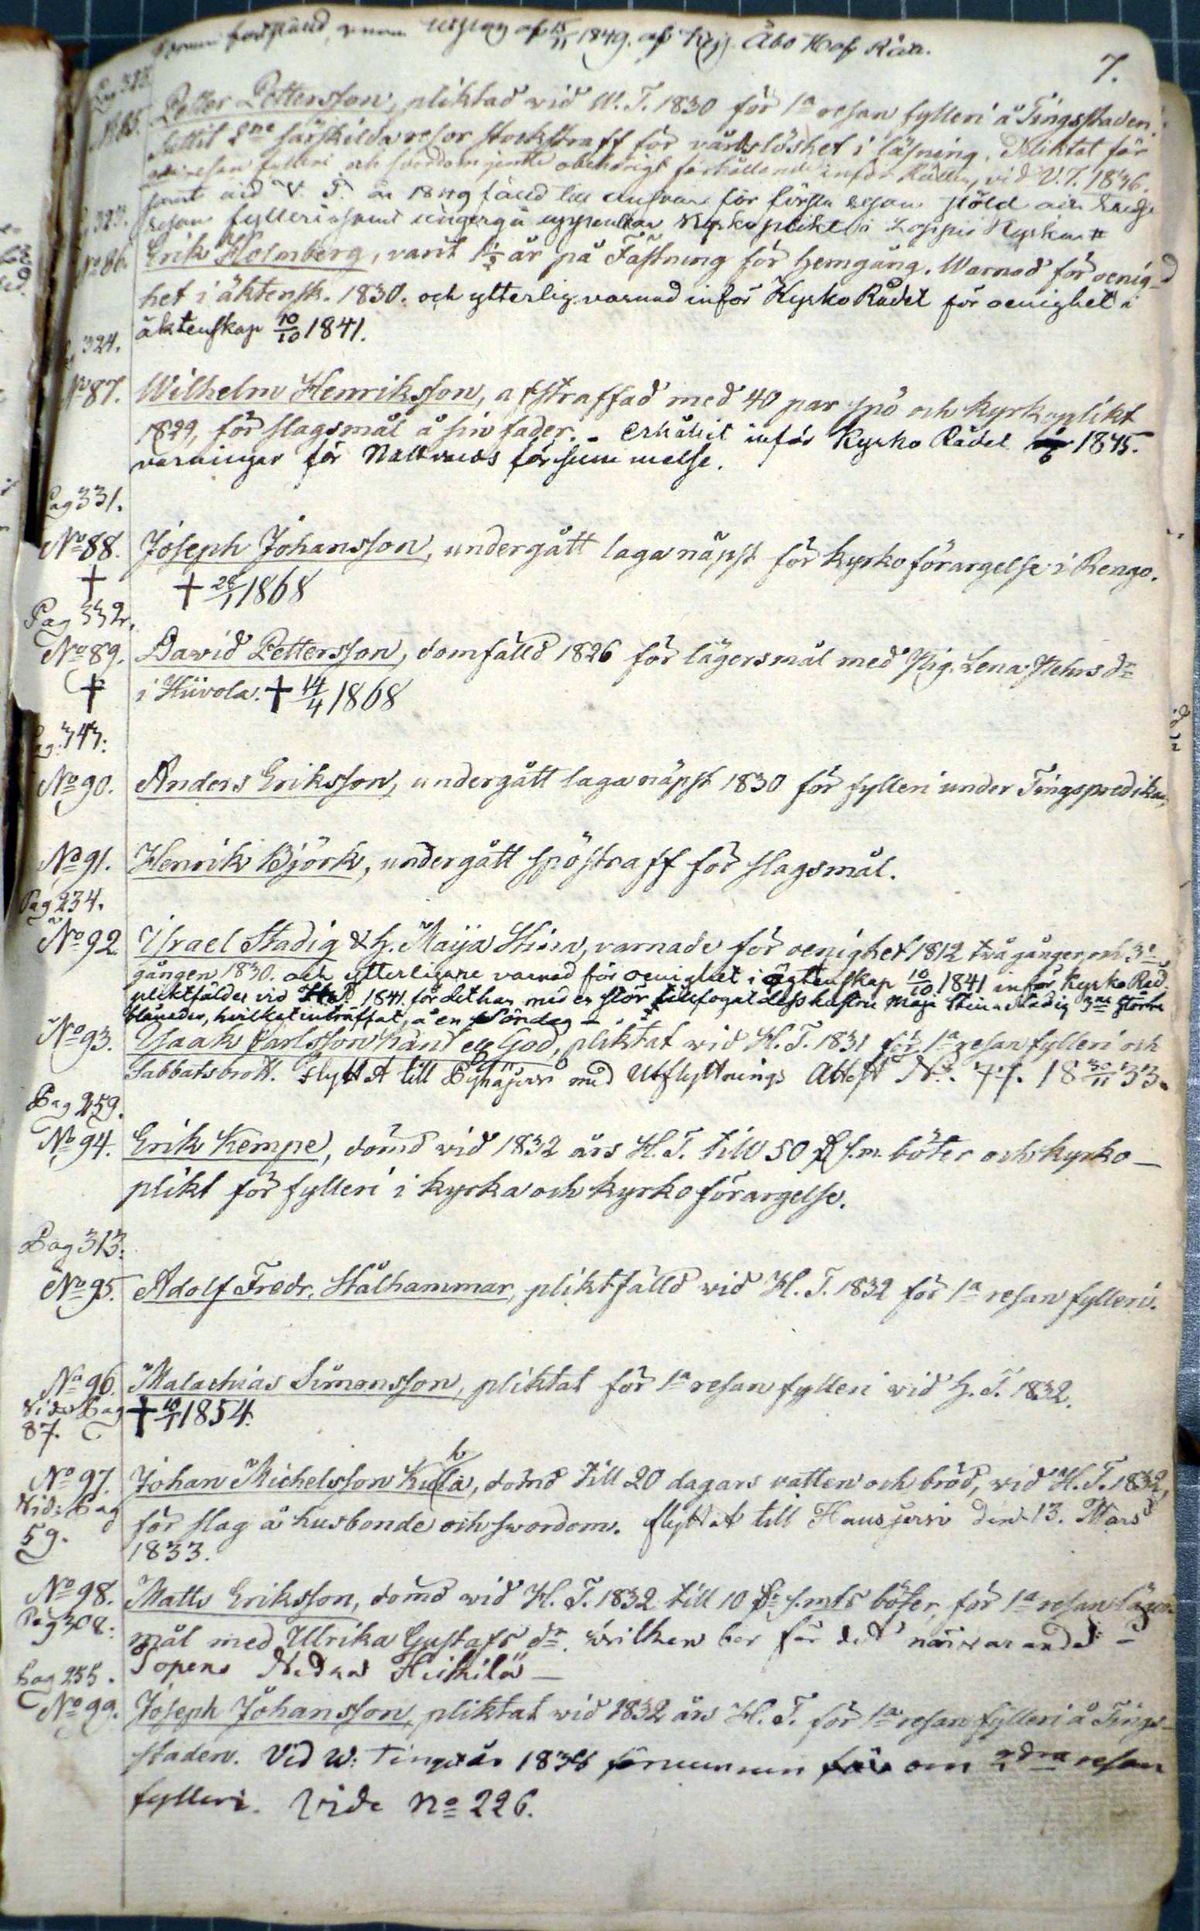 genom utslag af 15/11 1849. af Kejs. Åbo Hof Rätt.
7.
Pag 323.
No 85. Petter Pettersson, pliktad vid W. T. 1830 för 1a resan fylleri å Tingsstaden.
Suttit 2ne särskilda resor stockstraff för vårdslöshet i läsning. Pliktat för
resan fylleri och svordom jemte obehörigt förhållande inför Rätten, vid V.T. 1836.
samt vid V. T. år 1849 fälld till ansvar för första resan stöld och tredje
resan fylleri samt undergå uppenbar Kyrkoplikt i Loppis Kyrka #
323.
No 86. Erik Holmberg, varit 1 1/2 år på Fästning för hemgång. Warnad för oenig-
het i äktensk. 1830. och ytterlig. varnad inför Kyrko Rådet för oenighet i
äktenskap 10/10 1841.
324.
No 87. Wilhelm Henriksson, afstraffad med 40 par spö och kyrkoplikt
1829, för slagsmål å sin fader. - Erhållit inför Kyrko Rådet 1845.
varningar för Nattvards försummelse.
Pag 331.
No 88. Joseph Johansson, undergått laga näpst för kyrkoförargelse i Rengo.
† † 28/1 1868
Pag 332.
No 89. David Pettersson, domfälld 1826 för lägersmål med Pig. Lena Mehrs dr
† i Hiivola. † 14/4 1868
Pag. 343:
No 90. Anders Eriksson, undergått laga näpst 1830 för fylleri under Tingspredikan
No 91. Henrik Björk, undergått spöstraff för slagsmål.
Pag 234.
No 92 Israel Stadig & h. Maija Stina, varnade för oenighet 1812 två gånger och 3e
gången 1830. och ytterligare varnad för oenighet i Egtenskap 10/10 1841 inför Kyrko Råd.
pliktfälder vid H.T. 1841 för det han med en stör tillfogat dess hustru Maja Stina Stadig 3ne större
blånader, hvilket inträffat å en Söndag -
No 93. Isaak Carlsson känd ej God, pliktat vid H. T. 1831 för 1a resan fylleri och
Sabbatsbrott. Flyttat till Pyhäjärvi med Utflyttnings Attest No. 77. 18 30/11 33.
Pag 259.
No 94. Erik Kempe, dömd vid 1832 års H. T. till 50 R s.m. böter och kyrko-
plikt för fylleri i kyrka och kyrkoförargelse.
Pag 313:
No 95. Adolf Fredr. Stålhammar, pliktfälld vid H. T. 1832 för 1a resan fylleri.
No 96. Malachias Simonsson, pliktat för 1a resan fylleri vid H. T. 1832.
Vide Pag 87. † 10/1 1854.
No 97. Johan Michelsson Kula, dömd till 20 dagars vatten och bröd, vid H. T. 1832,
Vide Pag för slag å husbonde och svordom. flyttat till Hausjervi den 13. Mars
59. 1833.
No 98. Matts Eriksson, dömd vid H. T. 1832 till 10 R. s.mts böter, för 1a resan läger-
Pag 308: mål med Ullrika Gustafs dr. hvilken bor för det närvarande -
Topeno Nedra Heikilä -
Pag 255.
No 99. Joseph Johansson, pliktat vid 1832 års H. T. för 1a resan fylleri å Tings-
staden. Vid W: Tinget år 1834 förvunnen för om andra resan
fylleri. Vide No 226.